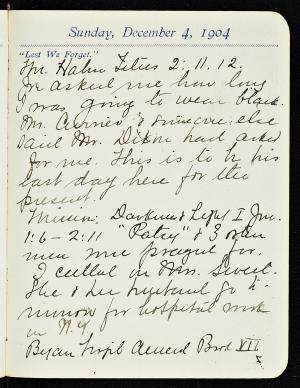 Sunday, December 4, 1904
"Lest We Forget."
Mr. Hahn Titus 2: 11. 12.
He asked me how long
I was going to wear black.
Mr. Currier & someone else
said Mr. Dixon had asked
for me. This is to be his
last day here for the
present.
Mission: Darkness & Light I Jno.
1:6 – 2:11 "Patsy" & 3 other
men were prayed for.
I called on Mrs. Sweet.
She & her husband go to
for hospital work
in N.Y.
Began Aeneid Book VII